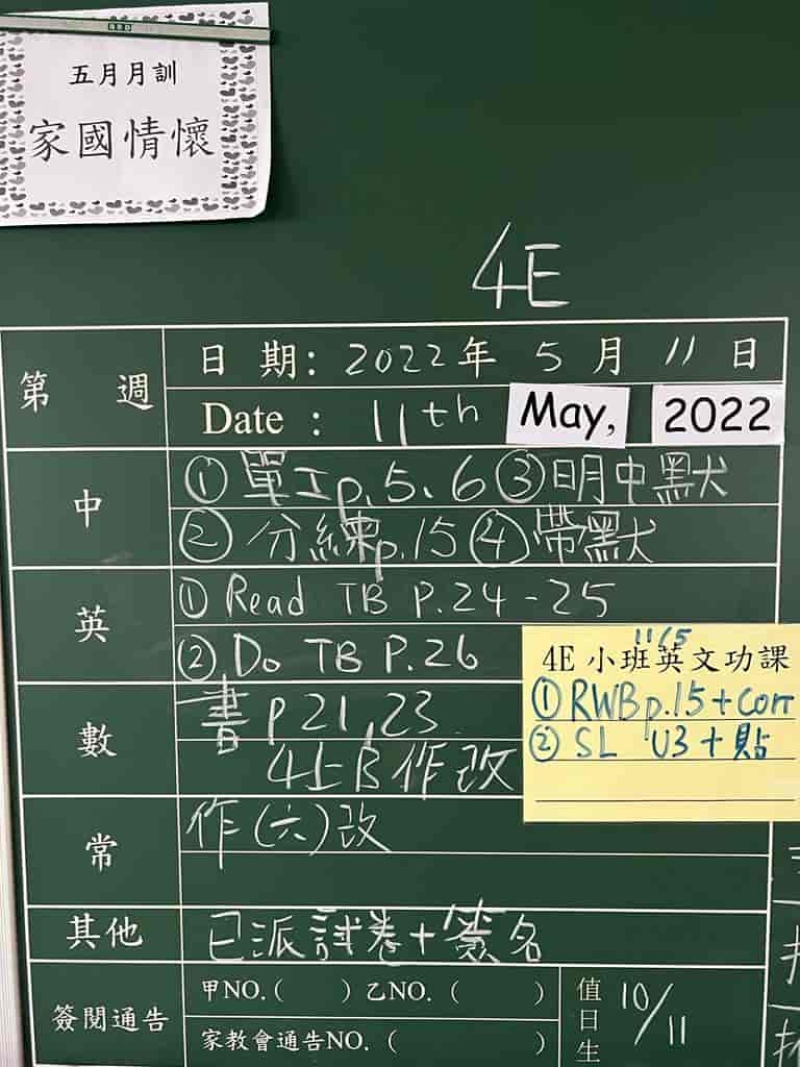 五月月訓
家國情懷
4E
第 週
日 期: 2022年 5 月 11 日
Date : 11th May, 2022
中
① 單工p.5、6 ③明中默
② 分練p.15 ④帶默
英
① Read TB P.24-25
② Do TB P.26
11/5
4E 小班英文功課
① RWBp.15+corr
② SL U3+貼
數
書 P21,23
4上B作改
常
作(六)改
其他
已派試卷+簽名
簽閱通告
甲NO.( ) 乙NO.( )
家教會通告NO.( )
值日生
10/11